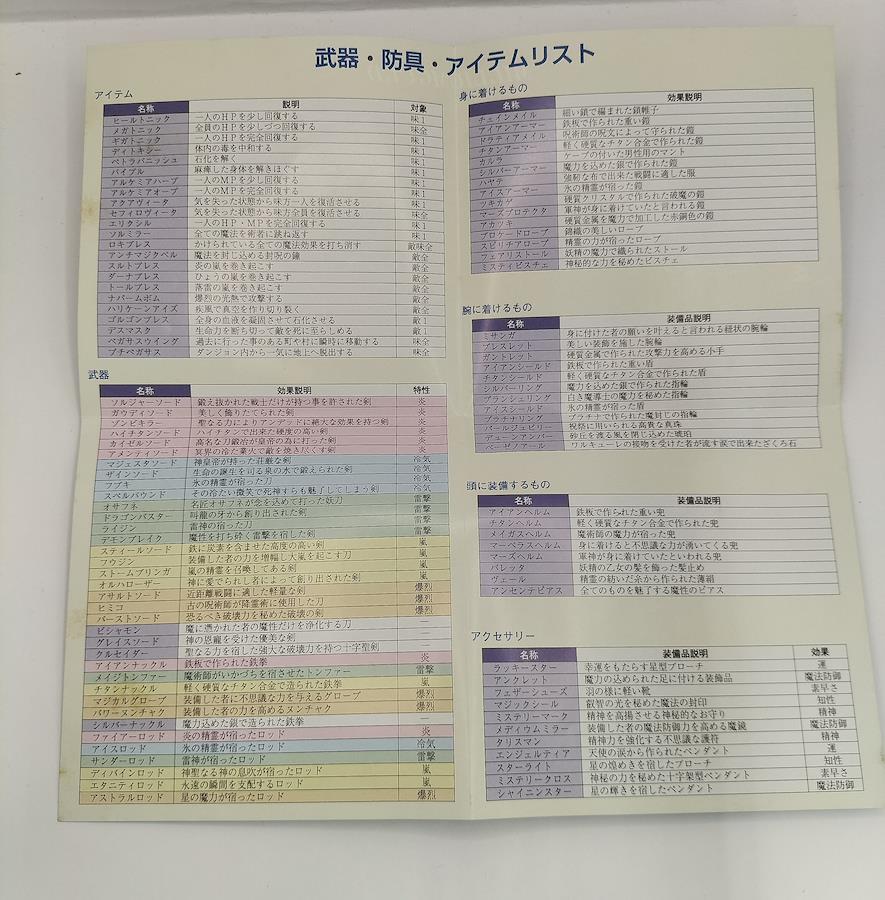 武器・防具・アイテムリスト
アイテム
名称 説明 対象
ヒールトニック 一人のHPを少し回復する 味1
メガトニック 全員のHPを少しづつ回復する 味全
ギガトニック 一人のHPを完全回復する 味1
ディトキシー 体内の毒を中和する 味1
ペトラバニッシュ 石化を解く 味1
バイブル 麻痺した身体を解きほぐす 味1
アルケミアハーブ 一人のMPを少し回復する 味1
アルケミアオーブ 一人のMPを完全回復する 味1
アクアヴィータ 気を失った状態から味方一人を復活させる 味1
セフィロヴィータ 気を失った状態から味方全員を復活させる 味全
エリクシル 一人のHP・MPを完全回復する 味1
ソルミラー 全ての魔法を術者に跳ね返す 味1
ロキブレス かけられている全ての魔法効果を打ち消す 敵味全
アンチマジクベル 魔法を封じ込める封呪の鐘 敵全
スルトブレス 炎の嵐を巻き起こす 敵全
ダーナブレス ひょうの嵐を巻き起こす 敵全
トールブレス 落雷の嵐を巻き起こす 敵全
ナパームボム 爆烈の光熱で攻撃する 敵全
ハリケーンアイズ 疾風で真空を作り切り裂く 敵全
ゴルゴンブレス 全身の血液を凝固させて石化させる 敵全
デスマスク 生命力を断ち切って敵を死に至らしめる 敵1
ペガサスウイング 過去に行った事のある町や村に瞬時に移動する 味全
プチペガサス ダンジョン内から一気に地上へ脱出する 味全
武器
名称 効果説明 特性
ソルジャーソード 鍛え抜かれた戦士だけが持つ事を許された剣 炎
ガウディソード 美しく飾りたてられた剣 炎
ゾンビキラー 聖なる力によりアンデッドに絶大な効果を持つ剣 炎
ハイチタンソード ハイチタンで出来た硬度の高い剣 炎
カイゼルソード 高名な刀鍛冶が皇帝の為に打った剣 炎
アメンティソード 冥界の冷たい業火で敵を焼き尽くす剣 炎
マジェスタソード 神皇帝が持った荘厳な剣 冷気
ザインソード 生命の誕生を司る泉の水で鍛えられた剣 冷気
フブキ 氷の精霊が宿った刀 冷気
スペルバウンド その冷たい微笑で死神すらも魅了してしまう剣 冷気
オサフネ 名匠オサフネが念を込めて打った妖刀 雷撃
ドラゴンバスター 叫龍の牙から創り出された剣 雷撃
ライジン 雷神の宿った刀 雷撃
デモンブレイク 魔性を打ち砕く雷撃を宿した剣 雷撃
スティールソード 鉄に炭素を含ませた高度の高い剣 嵐
フウジン 装備した者の力を増幅し大嵐を起こす刀 嵐
ストームブリンガ 嵐の精霊を召喚してある剣 嵐
オルハローザー 神に愛でられし者によって創り出された剣 嵐
アサルトソード 近距離戦闘に適した軽量な剣 爆烈
ヒミコ 古の呪術師が降霊術に使用した刀 爆烈
バーストソード 恐るべき破壊力を秘めた破壊の剣 爆烈
ビシャモン 魔に憑かれた者の魔性だけを浄化する刀 —
グレイスソード 神の恩寵を受けた優美な剣 —
クルセイダー 聖なる力を宿した強大な破壊力を持つ十字聖剣 —
アイアンナックル 鉄板で作られた鉄拳 炎
メイジトンファー 魔術師がいかづちを宿させたトンファー 雷撃
チタンナックル 軽く硬質なチタン合金で造られた鉄拳 嵐
マジカルグローブ 装備した者に不思議な力を与えるグローブ 爆烈
パワーヌンチャク 装備した者の力を高めるヌンチャク 爆烈
シルバーナックル 魔力込めた銀で造られた鉄拳 —
ファイアーロッド 炎の精霊が宿ったロッド 炎
アイスロッド 氷の精霊が宿ったロッド 冷気
サンダーロッド 雷神が宿ったロッド 雷撃
ディバインロッド 神聖なる神の息吹が宿ったロッド 嵐
エタニティロッド 永遠の瞬間を支配するロッド 嵐
アストラルロッド 星の魔力が宿ったロッド 爆烈
身に着けるもの
名称 効果説明
チェインメイル 細い鎖で編まれた鎖帷子
アイアンアーマー 鉄板で作られた重い鎧
ドラティアメイル 呪術師の呪文によって守られた鎧
チタンアーマー 軽く硬質なチタン合金で作られた鎧
カルラ ケープの付いた男性用のマント
シルバーアーマー 魔力を込めた銀で作られた鎧
ハヤテ 強靭な布で出来た戦闘に適した服
アイスアーマー 氷の精霊が宿った鎧
ツキカゲ 硬質クリスタルで作られた破魔の鎧
マーズプロテクタ 軍神が身に着けていたと言われる鎧
アカツキ 硬質金属を魔力で加工した赤銅色の鎧
ブロケードローブ 錦織の美しいローブ
スピリチアローブ 精霊の力が宿ったローブ
フェアリストール 妖精の魔力で織られたストール
ミスティビスチェ 神秘的な力を秘めたビスチェ
腕に着けるもの
名称 装備品説明
ミサンガ 身に付けた者の願いを叶えると言われる紐状の腕輪
ブレスレット 美しい装飾を施した腕輪
ガントレット 硬質金属で作られた攻撃力を高める小手
アイアンシールド 鉄板で作られた重い盾
チタンシールド 軽く硬質なチタン合金で作られた盾
シルバーリング 魔力を込めた銀で作られた指輪
ブランシェリング 白き魔導士の魔力を秘めた指輪
アイスシールド 氷の精霊が宿った盾
プラチナリング プラチナで作られた魔封じの指輪
パールジェビリー 祝祭に用いられる高貴な真珠
デューンアンバー 砂丘を渡る風を閉じ込めた琥珀
ベーゼノアール ワルキューレの接吻を受けた者が流す涙で出来たざくろ石
頭に装備するもの
名称 装備品説明
アイアンヘルム 鉄板で作られた重い兜
チタンヘルム 軽く硬質なチタン合金で作られた兜
メイガスヘルム 魔術師の魔力が宿った兜
マーベラスヘルム 身に着けると不思議な力が湧いてくる兜
マーズヘルム 軍神が身に着けていたといわれる兜
バレッタ 妖精の乙女の髪を飾った髪止め
ヴェール 精霊の紡いだ糸から作られた薄絹
アンセンテピアス 全てのものを魅了する魔性のピアス
アクセサリー
名称 装備品説明 効果
ラッキースター 幸運をもたらす星型ブローチ 運
アンクレット 魔力の込められた足に付ける装飾品 魔法防御
フェザーシューズ 羽の様に軽い靴 素早さ
マジックシール 叡智の光を秘めた魔法の封印 知性
ミステリーマーク 精神を高揚させる神秘的なお守り 精神
メディウムミラー 装備した者の魔法防御力を高める魔鏡 魔法防御
タリスマン 精神力を強化する不思議な護符 精神
エンジェルティア 天使の涙から作られたペンダント 運
スターライト 星の煌めきを宿したブローチ 知性
ミステリークロス 神秘の力を秘めた十字架型ペンダント 素早さ
シャイニンスター 星の輝きを宿したペンダント 魔法防御